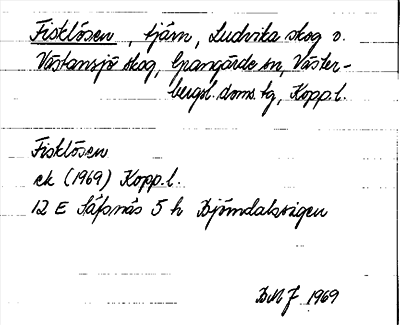 Fisklösen, tjärn, Ludvika skog o.
Västansjö skog, Grangärde sn, Väster-
bergsl. doms. tg, Kopp. l.
Fisklösen
ek (1969) Kopp. l.
12 E Säfsnäs 5 h Björndalsvägen
1969